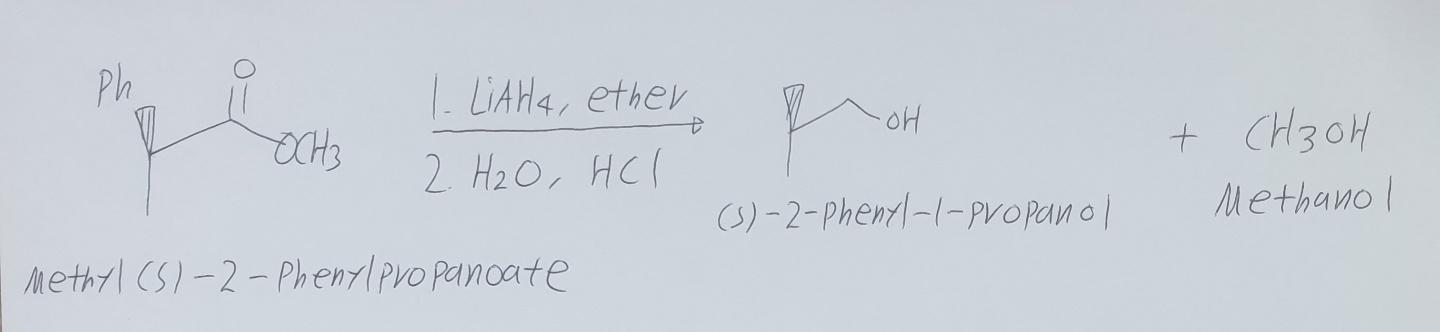 Ph
O
OCH3
1. LiAH4, ether
2. H2O, HCl
OH
+ CH3OH
(S)-2-phenyl-1-propanol
Methanol
Methyl (S)-2-Phenylpropanoate